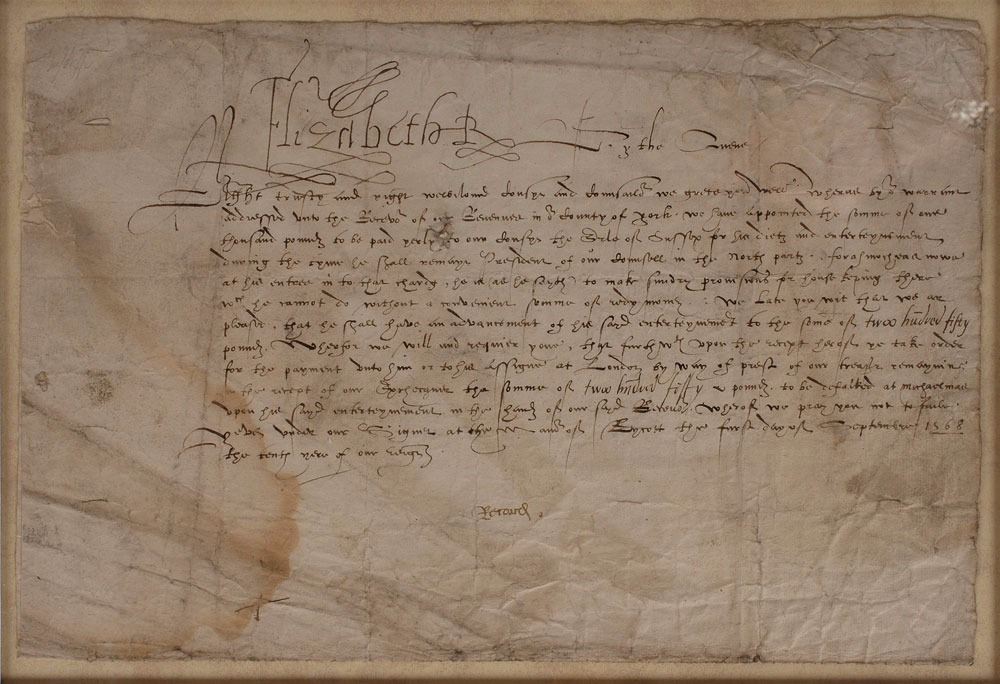 Elizabeth R
By the Quene
Right trusty and right welbiloved Cousyn and Counsailor we grete you well. Wheras by or warraunt
addressed unto the Recevor of our Revenues in or County of York we have appointed the somme of one
thousand poundes to be paid yerly to our Cousyn the Erle of Sussex for his dietes and enterteynement
during the tyme he shall remayn President of our Counsell in the North partes. forasmocheas nowe
at his entree in to that charge, he is as he sayth to make sundry provisions for house keping there
wch he cannot do without a convenient somme of redy mony. We late you wit that we ar
pleased, that he shall have an advancement of his sayd enterteynement to the some of twoo hundred fifty
poundes. Wherfor we will and requier youe, that furthwt upon the receipt herof ye take order
for the payment unto him or to his assigne at London by way of prest of our treasr remayning
in the receipt of our Exchequer the somme of twoo hundred fifty poundes to be defalted at michaelmas
upon his sayd enterteynement in the handes of our sayd Recevor. Wherof we pray you not to faile.
Yeven under our Signet at the Manor of the first day of Septembre 1568
the tenth yere of our reign.